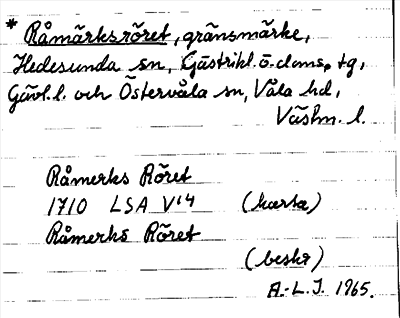 * Råmärksröret, gränsmärke,
Hedesunda sn, Gästrikl. ö. doms. tg,
Gävl. l. och Östervåla sn, Våla hd,
Västm. l.
Råmerks Röret
1710 LSA V14 (karta)
Råmerks Röret
(beskr)
A.-L.J. 1965.